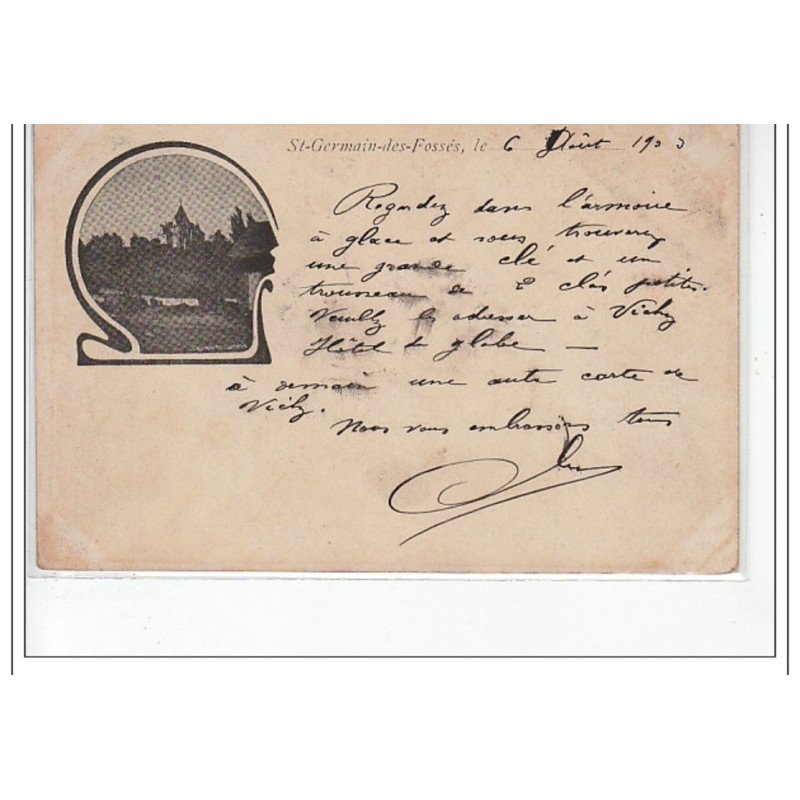 St-Germain-des-Fossés, le 6 Août 1903
Regardez dans l'armoire
à glace et vous trouverez
une grande clé et un
trousseau de 2 clés petites.
Veuillez les adresser à Vichy
Hôtel du globe —
à demain une autre carte de
Vichy.
Nous vous embrassons tous